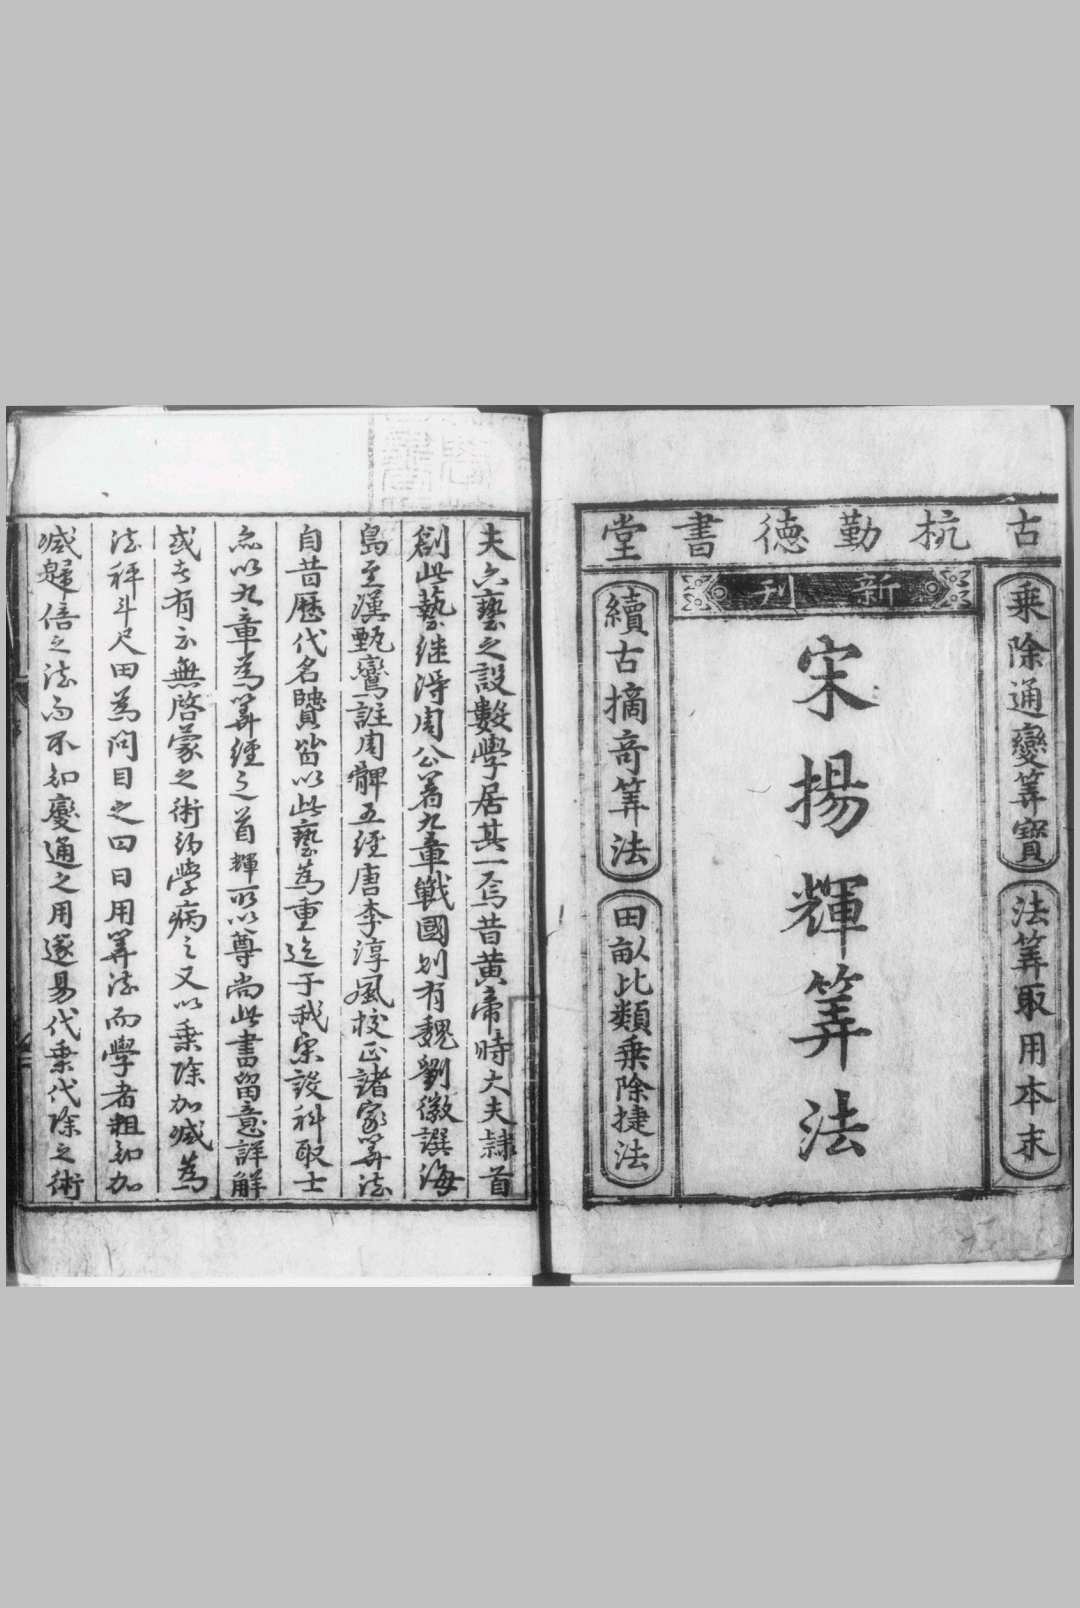 古杭勤德書堂
新刊
乗除通變筭寶
法筭取用本末
宋揚輝筭法
續古摘竒筭法
田畝比類乗除捷法
夫六藝之設數學居其一焉昔黄帝時大夫隷首
創此藝継得周公著九章戰國則有魏劉徽譔海
島至漢甄鸞註周髀五経唐李淳風校正諸家筭法
自昔歷代名賢皆以此藝為重迄于我宋設科取士
亦以九章為筭經之首輝所以尊尚此書留意詳解
或者有云無啓蒙之術初學病之又以乗除加减為
法秤斗尺田為問目之曰日用筭法而學者粗知加
减歸倍之法而不知變通之用遂易代乗代除之術